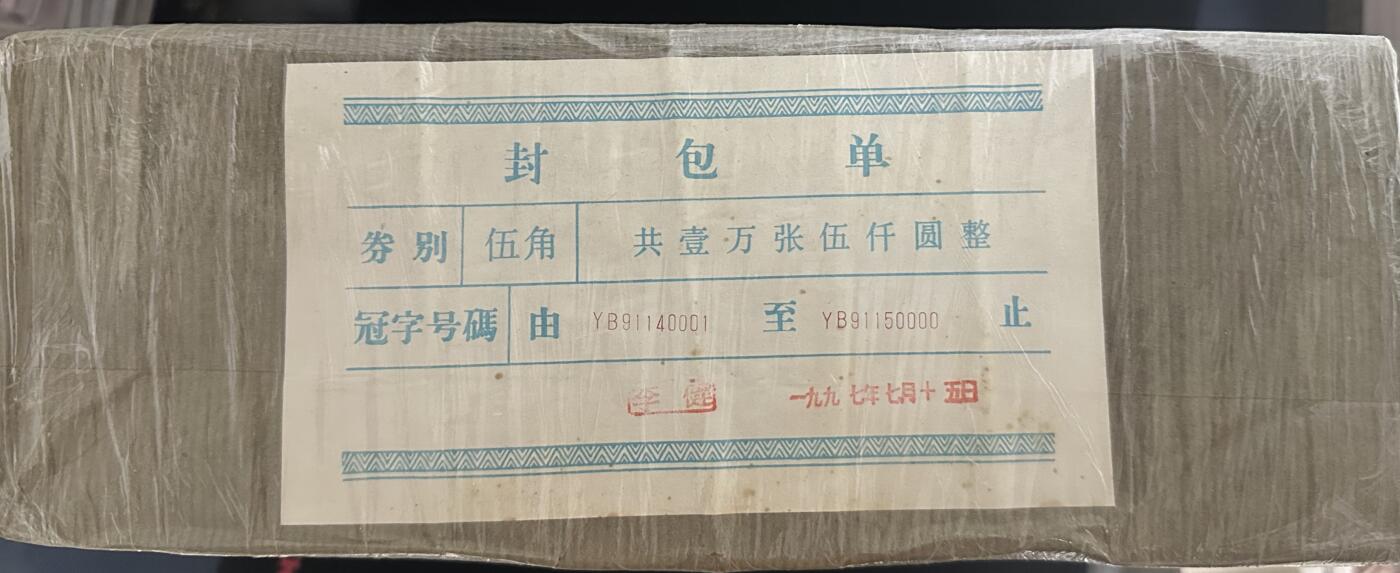 封包单
券别 伍角 共壹万张伍仟圆整
冠字号碼 由 YB91140001 至 YB91150000 止
李健 一九九七年七月十五日